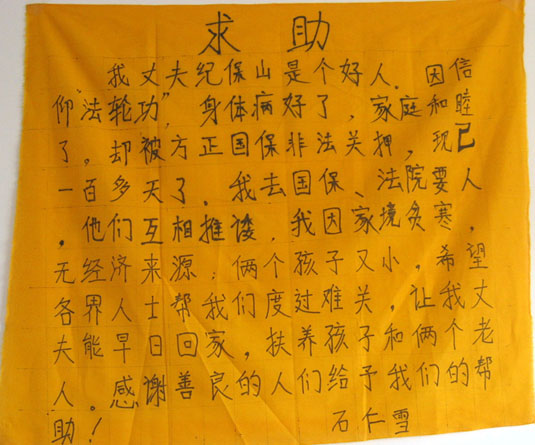 求助
我丈夫纪保山是个好人。因信
仰“法轮功”，身体病好了，家庭和睦
了。却被方正国保非法关押，现已
一百多天了。我去国保、法院要人
，他们互相推诿，我因家境贫寒，
无经济来源；俩个孩子又小，希望
各界人士帮我们度过难关，让我丈
夫能早日回家，扶养孩子和俩个老
人。感谢善良的人们给予我们的帮
助！
石仁雪